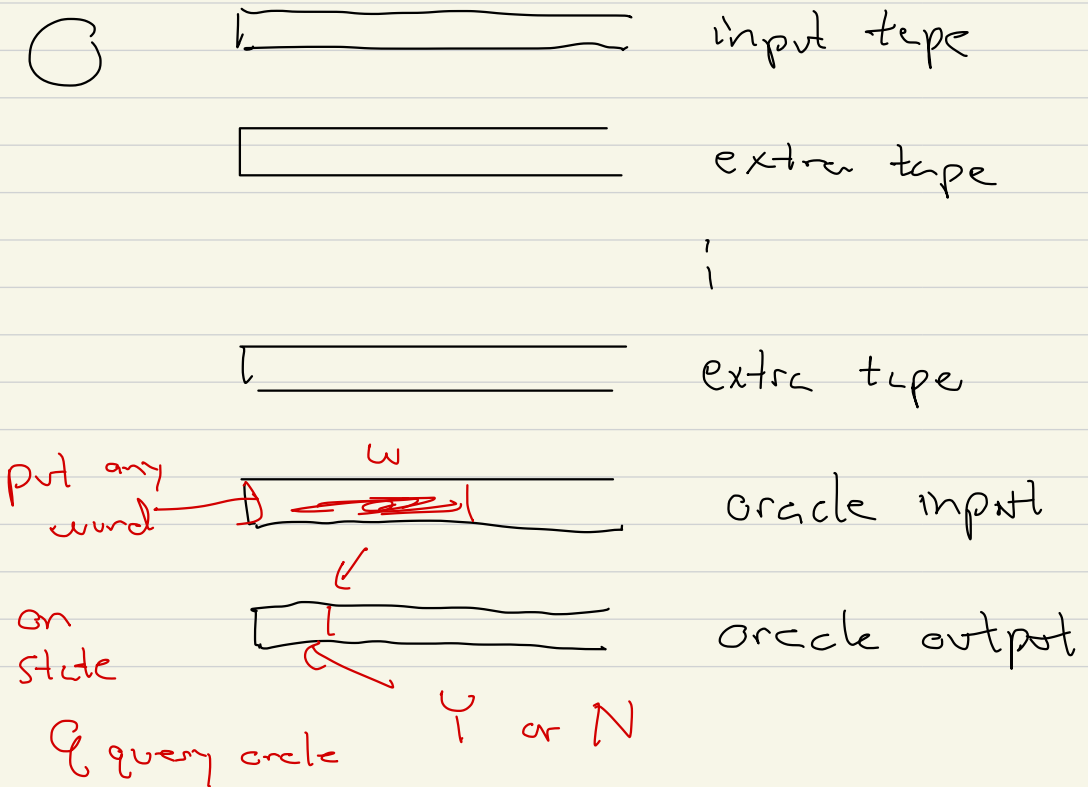 input tape
extra tape
extra tape
w
put any
word
oracle input
on
state
oracle output
Y or N
q query oracle